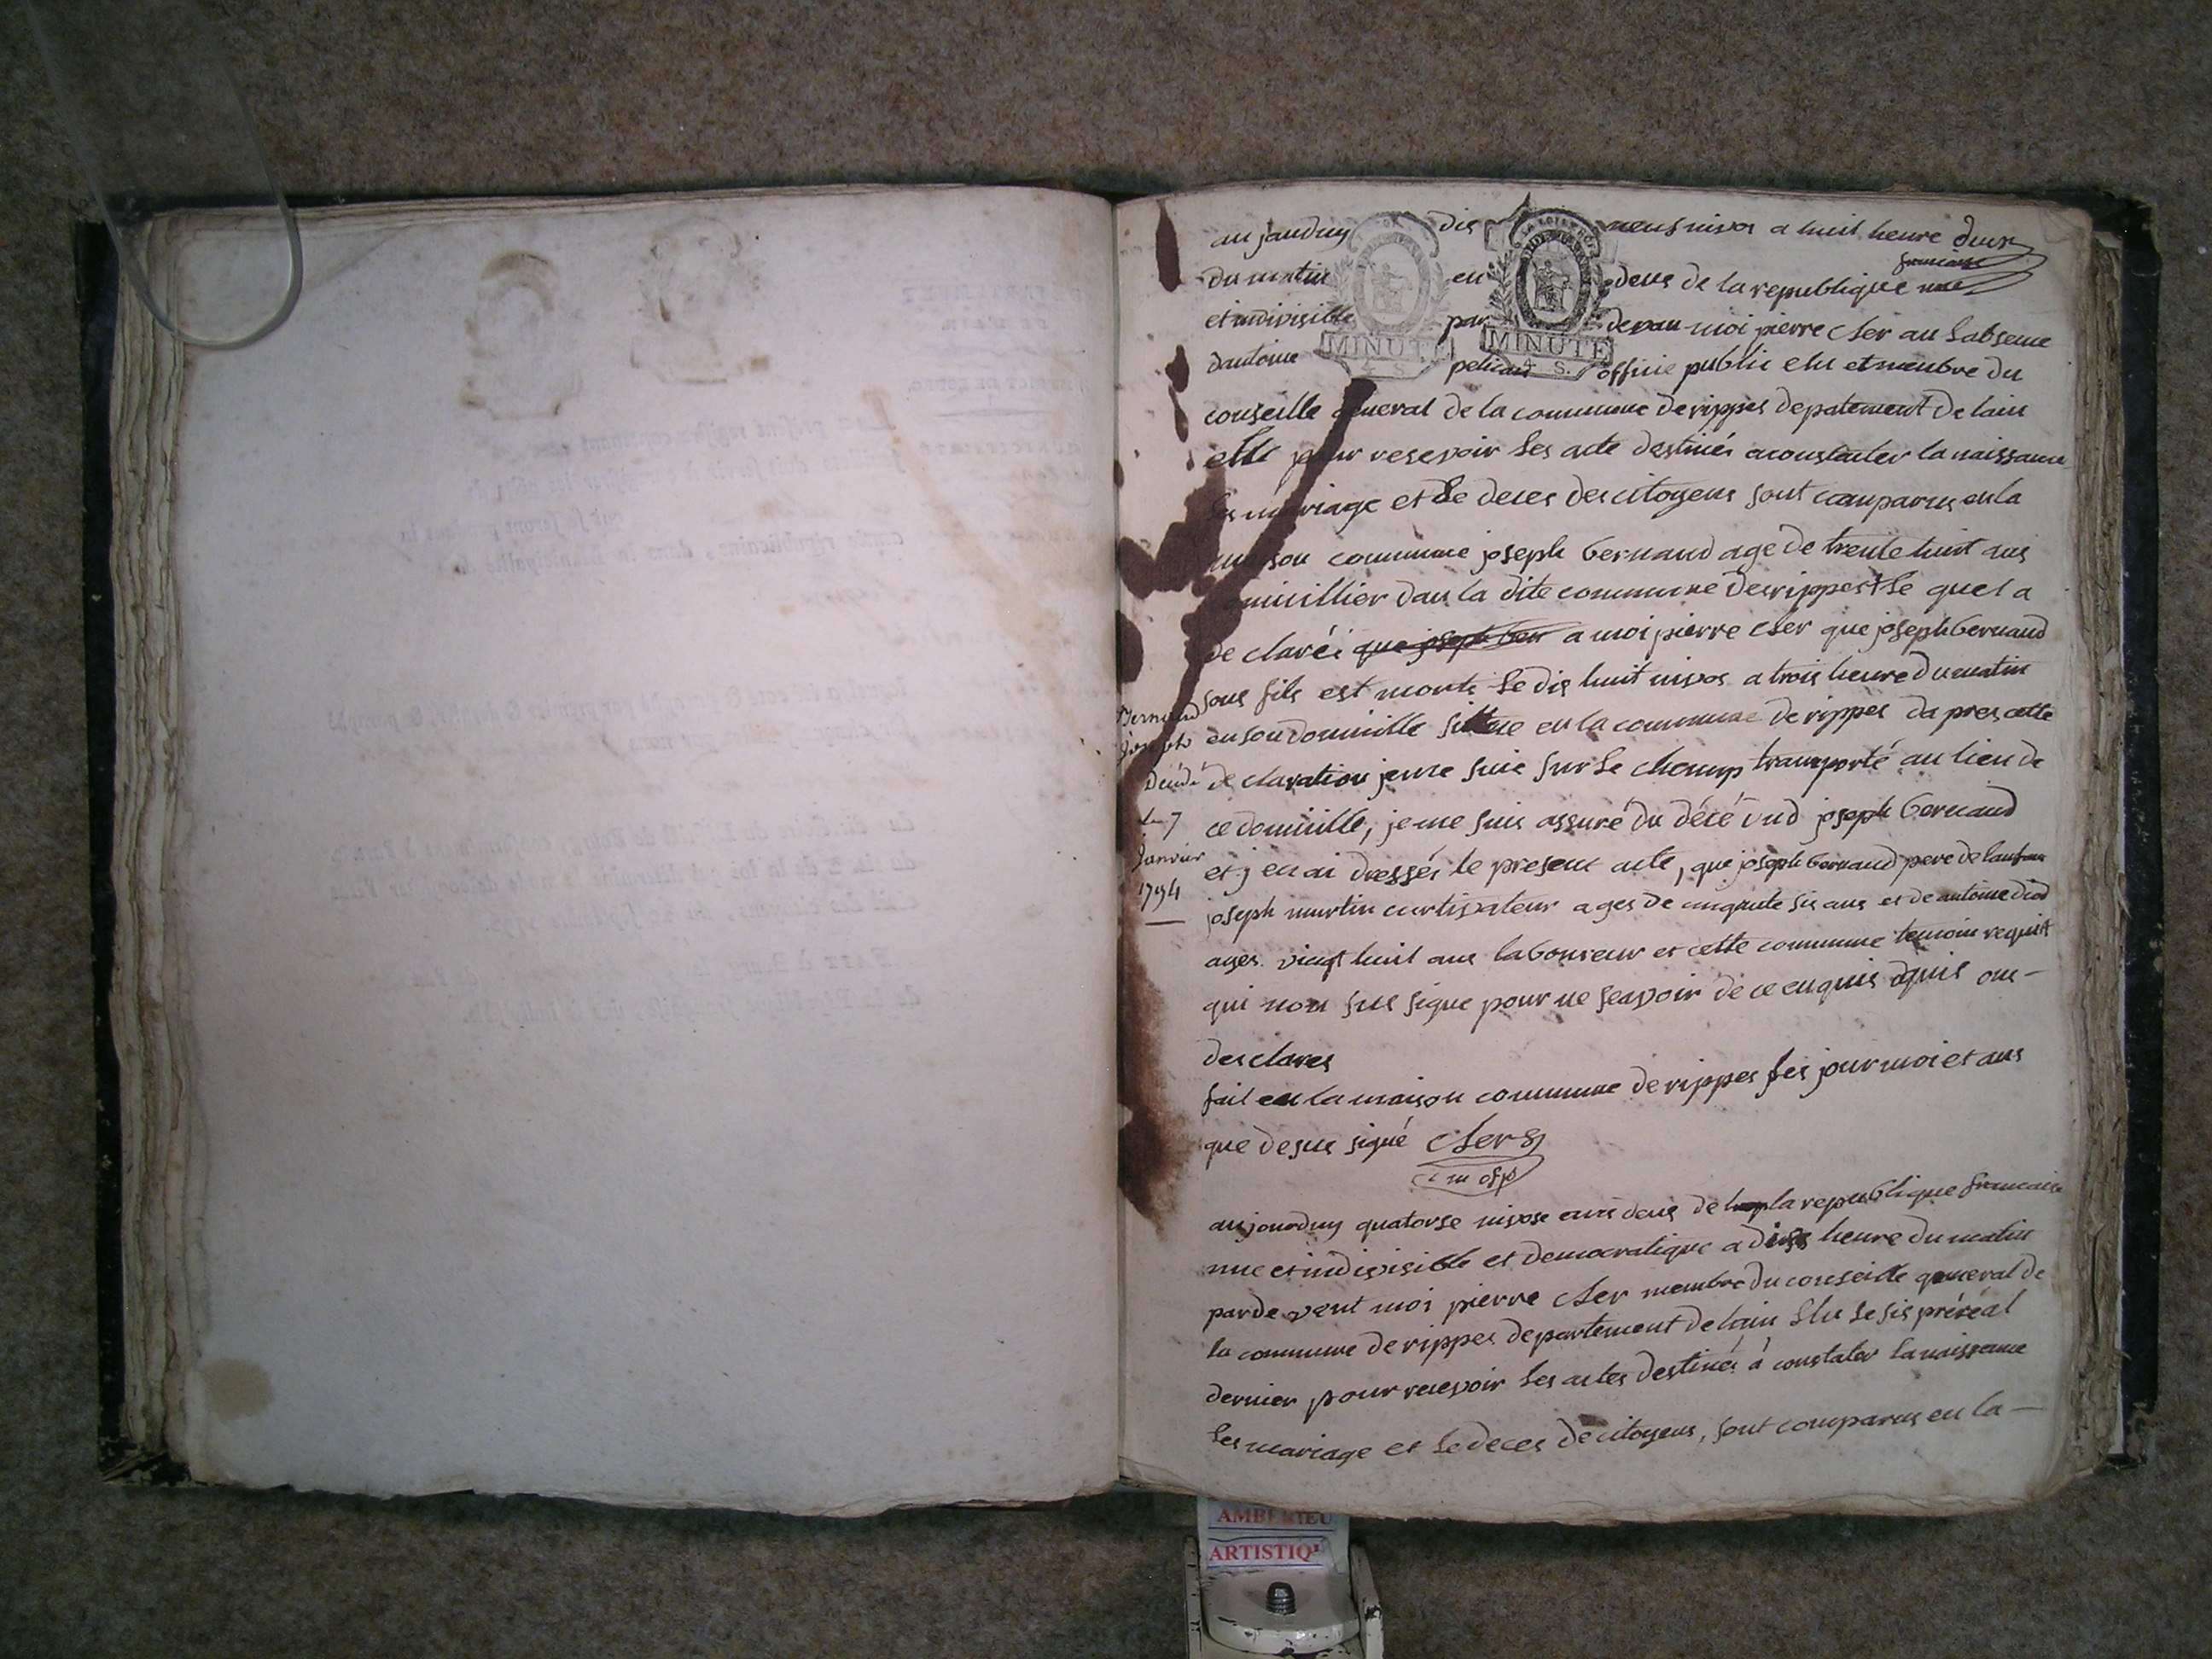 au jauduy dis neuf nivos a huit heure
du matin en deus de la republique francaise
et indivisible par devan moi pierre cher au labsence
dantoine pelicand officie public elu et membre du
conseille general de la commune de rippes depatement de lain
pour resevoir les acte destinés a constater la naissance
les mariage et le deces des citoyens sont comparus en la
maison commune joseph bernaud age de trente huit ans
domicillier dans la dite commune des rippes le quel a
de claréi que joseph ber a moi pierre cher que joseph bernaud
sons fils est morts le dis huit nivos a trois heure du matin
en son domicille sittue en la commune de rippes da pres cette
de claration je me suis sur le chemp transporté au lieu de
ce domicille, je me suis assuré du décé dud joseph bernaud
et j en ai dresséi le present acte, que joseph bernaud pere de lanfan
joseph murtin curtivateur ages de cinqante sis ans et de antoine
ages vingt huit ans laboureur et cette commune temoin requit
qui non sus signe pour ne seavoir de ce enquis ons
des clares
fait en la maison commune de rippes les jour moi et ans
que desus signé cher
aujourduy quatorse nivose ans deus de la republique francaise
une et indivisible et democratique a heure du matin
par de vent moi pierre cher membre du conseille general de
la commune de rippes departement de lain Elu le sis préréal
dernier pour recevoir les actes destinéi à constater la naissance
les mariage et le deces de citoyens, sont comparus en la
Bernaud
Joseph
Décédé
le 7
Janvier
1794
MINUTE
4 S.
MINUTE
4 S.
AMBERIEU
ARTISTIQ